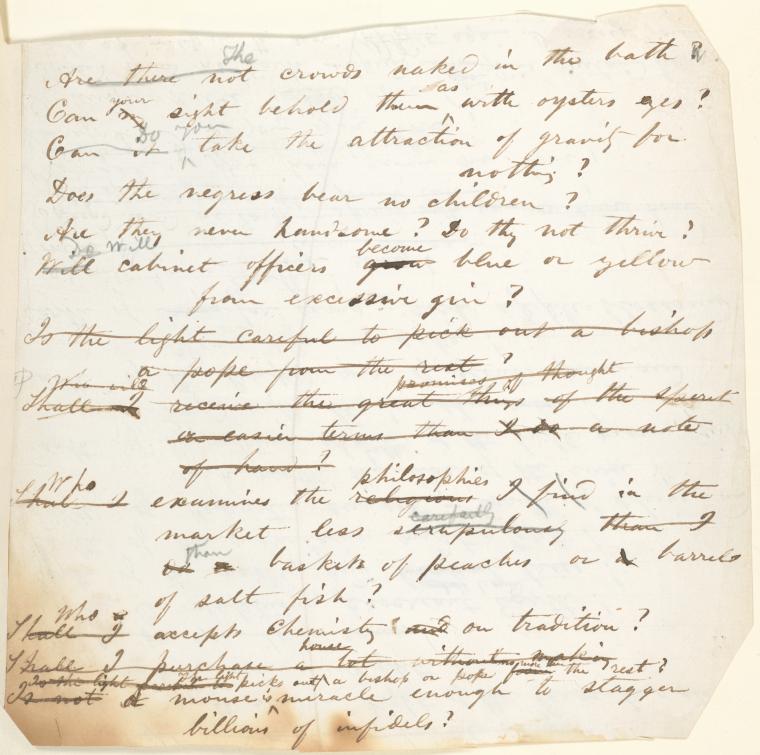 The
Are there not crowds naked in the bath
your as
Can my sight behold them with oysters eyes?
Do you
Can it take the attraction of gravity for
nothing?
Does the negress bear no children?
Are they never handsome? Do they not thrive?
Do Will become
Will cabinet officers grow blue or yellow
from excessive gin?
Is the light careful to pick out a bishop
or a pope from the rest?
Who will promises of thought
Shall I receive the great things of the spirit
on easier terms than I do a note
of hand?
Who philosophies
Shall I examines the religions I find in the
carefully
market less scrupulously than I
than
do a baskets of peaches or a barrels
of salt fish?
Who
Shall I accepts Chemistry and on tradition?
house
Shall I purchase a lot without making
Is the light the light picks out a bishop or pope more than the rest?
Is not a mouse is miracle enough to stagger
billions of infidels?